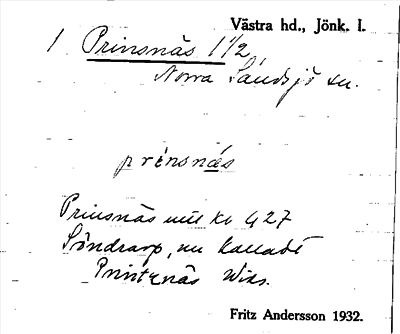 Västra hd., Jönk. l.
1 Prinsnäs 1 1/2
Norra Sandsjö sn.
prinsnäs
Prinsnäs mtl kr 427
Söndrarp, nu kalladt
Prinsnäs Wids.
Fritz Andersson 1932.